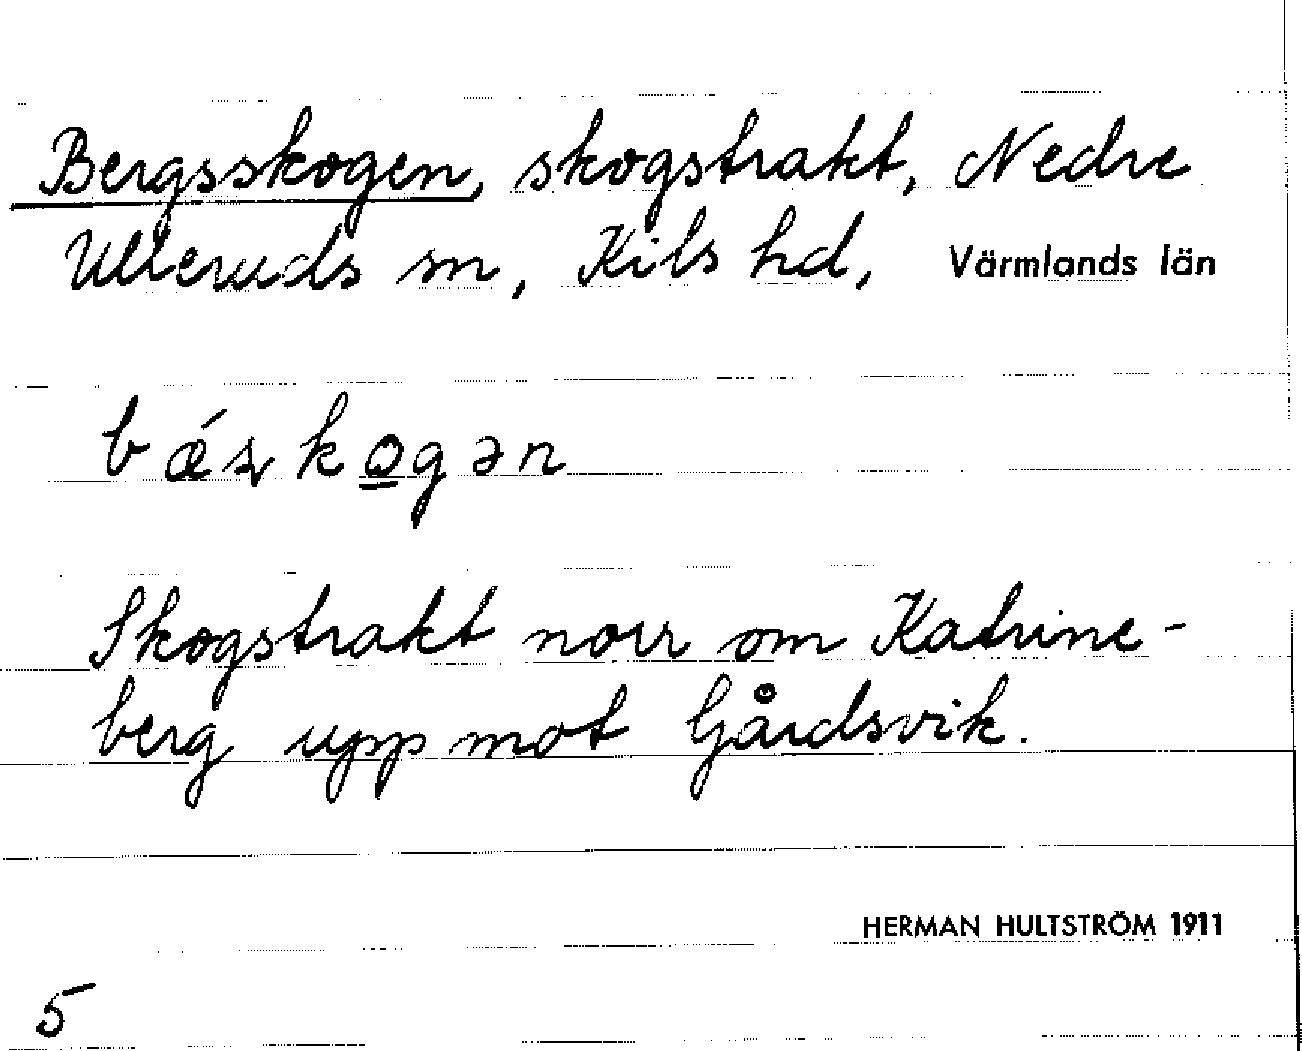 Bergsskogen, skogstrakt, Nedre
Ulleruds sn, Kils hd, Värmlands län
bǽʂko̲gən
Skogstrakt norr om Katrine-
berg upp mot Gårdsvik.
HERMAN HULTSTRÖM 1911
5